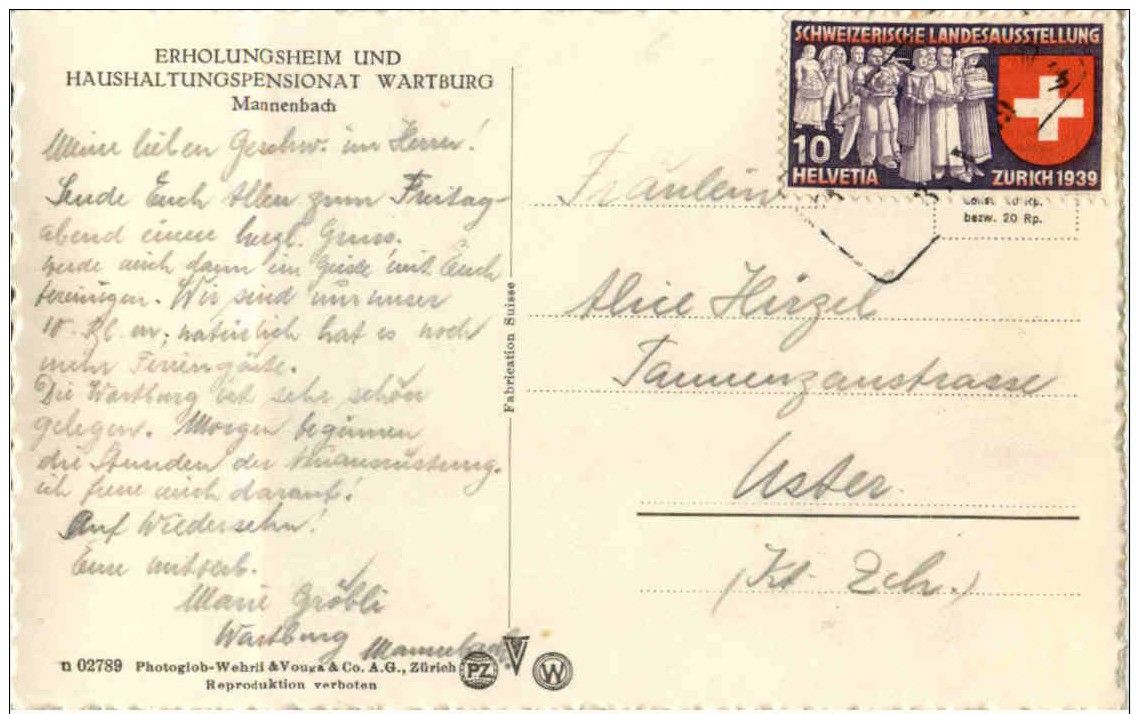 ERHOLUNGSHEIM UND
HAUSHALTUNGSPENSIONAT WARTBURG
Mannenbach
Meine lieben Geschw. im Herrn!
Sende Euch Allen zum Freitag-
abend einen herzl. Gruss.
werde mich dann im Geiste mit Euch
vereinigen. Wir sind nur unser
10. natürlich hat es noch
mehr Feriengäste.
Die Wartburg ist sehr schön
gelegen. Morgen beginnen
die Stunden der
ich freue mich darauf!
Auf Wiedersehn!
Eure mitverb.
Marie Gröbli
Wartburg Mannenbach
n 02789 Photoglob-Wehrli & Vouga & Co. A.G., Zürich PZ V W
Reproduktion verboten
Fabrication Suisse
SCHWEIZERISCHE LANDESAUSSTELLUNG
10
HELVETIA ZURICH 1939
bezw. 20 Rp.
Fräulein
Alice Hirzel
Tannenzaunstrasse
Uster.
(Kt. Zch.)